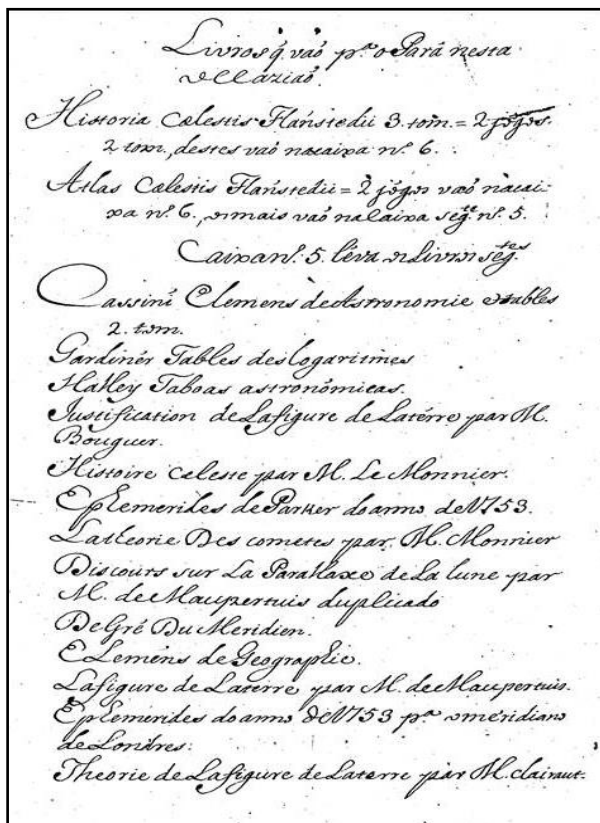 Livros q̃ vaõ p.ª o Parà nesta
occaziaõ.
Historia Cælestis Flanstedii 3. tom. = 2 jógos.
2 tom., destes vaõ na caixa n.º 6.
Atlas Calestis Flanstedii = 2 jógos vaõ nacai-
xa n.º 6., o mais vaõ na Caixa seg.te n.º 5.
Caixa n.º 5. léva os Livros seg.tes
Cassini Elemens de Astronomie e tables
2. tom.
Gardinér Tables des logaritmes
Halley Taboas astronómicas.
Justification de La figure de La térre par M.
Bouguer.
Histoire Celeste par M. Le Monnier.
Ephemerides de Parker do anno de 1753.
La theorie Des cometes par M. Monnier
Discours sur La Parallaxe de La lune par
M. de Maupertuis duplicado
De Gré Du Meridien.
ELemèns de Geographie.
La figure de La terre par M. de Maupertuis.
Ephemerides do anno de 1753 p.ª o meridiano
de Londres.
Theorie de La figure de La terre par M. Clairaut.